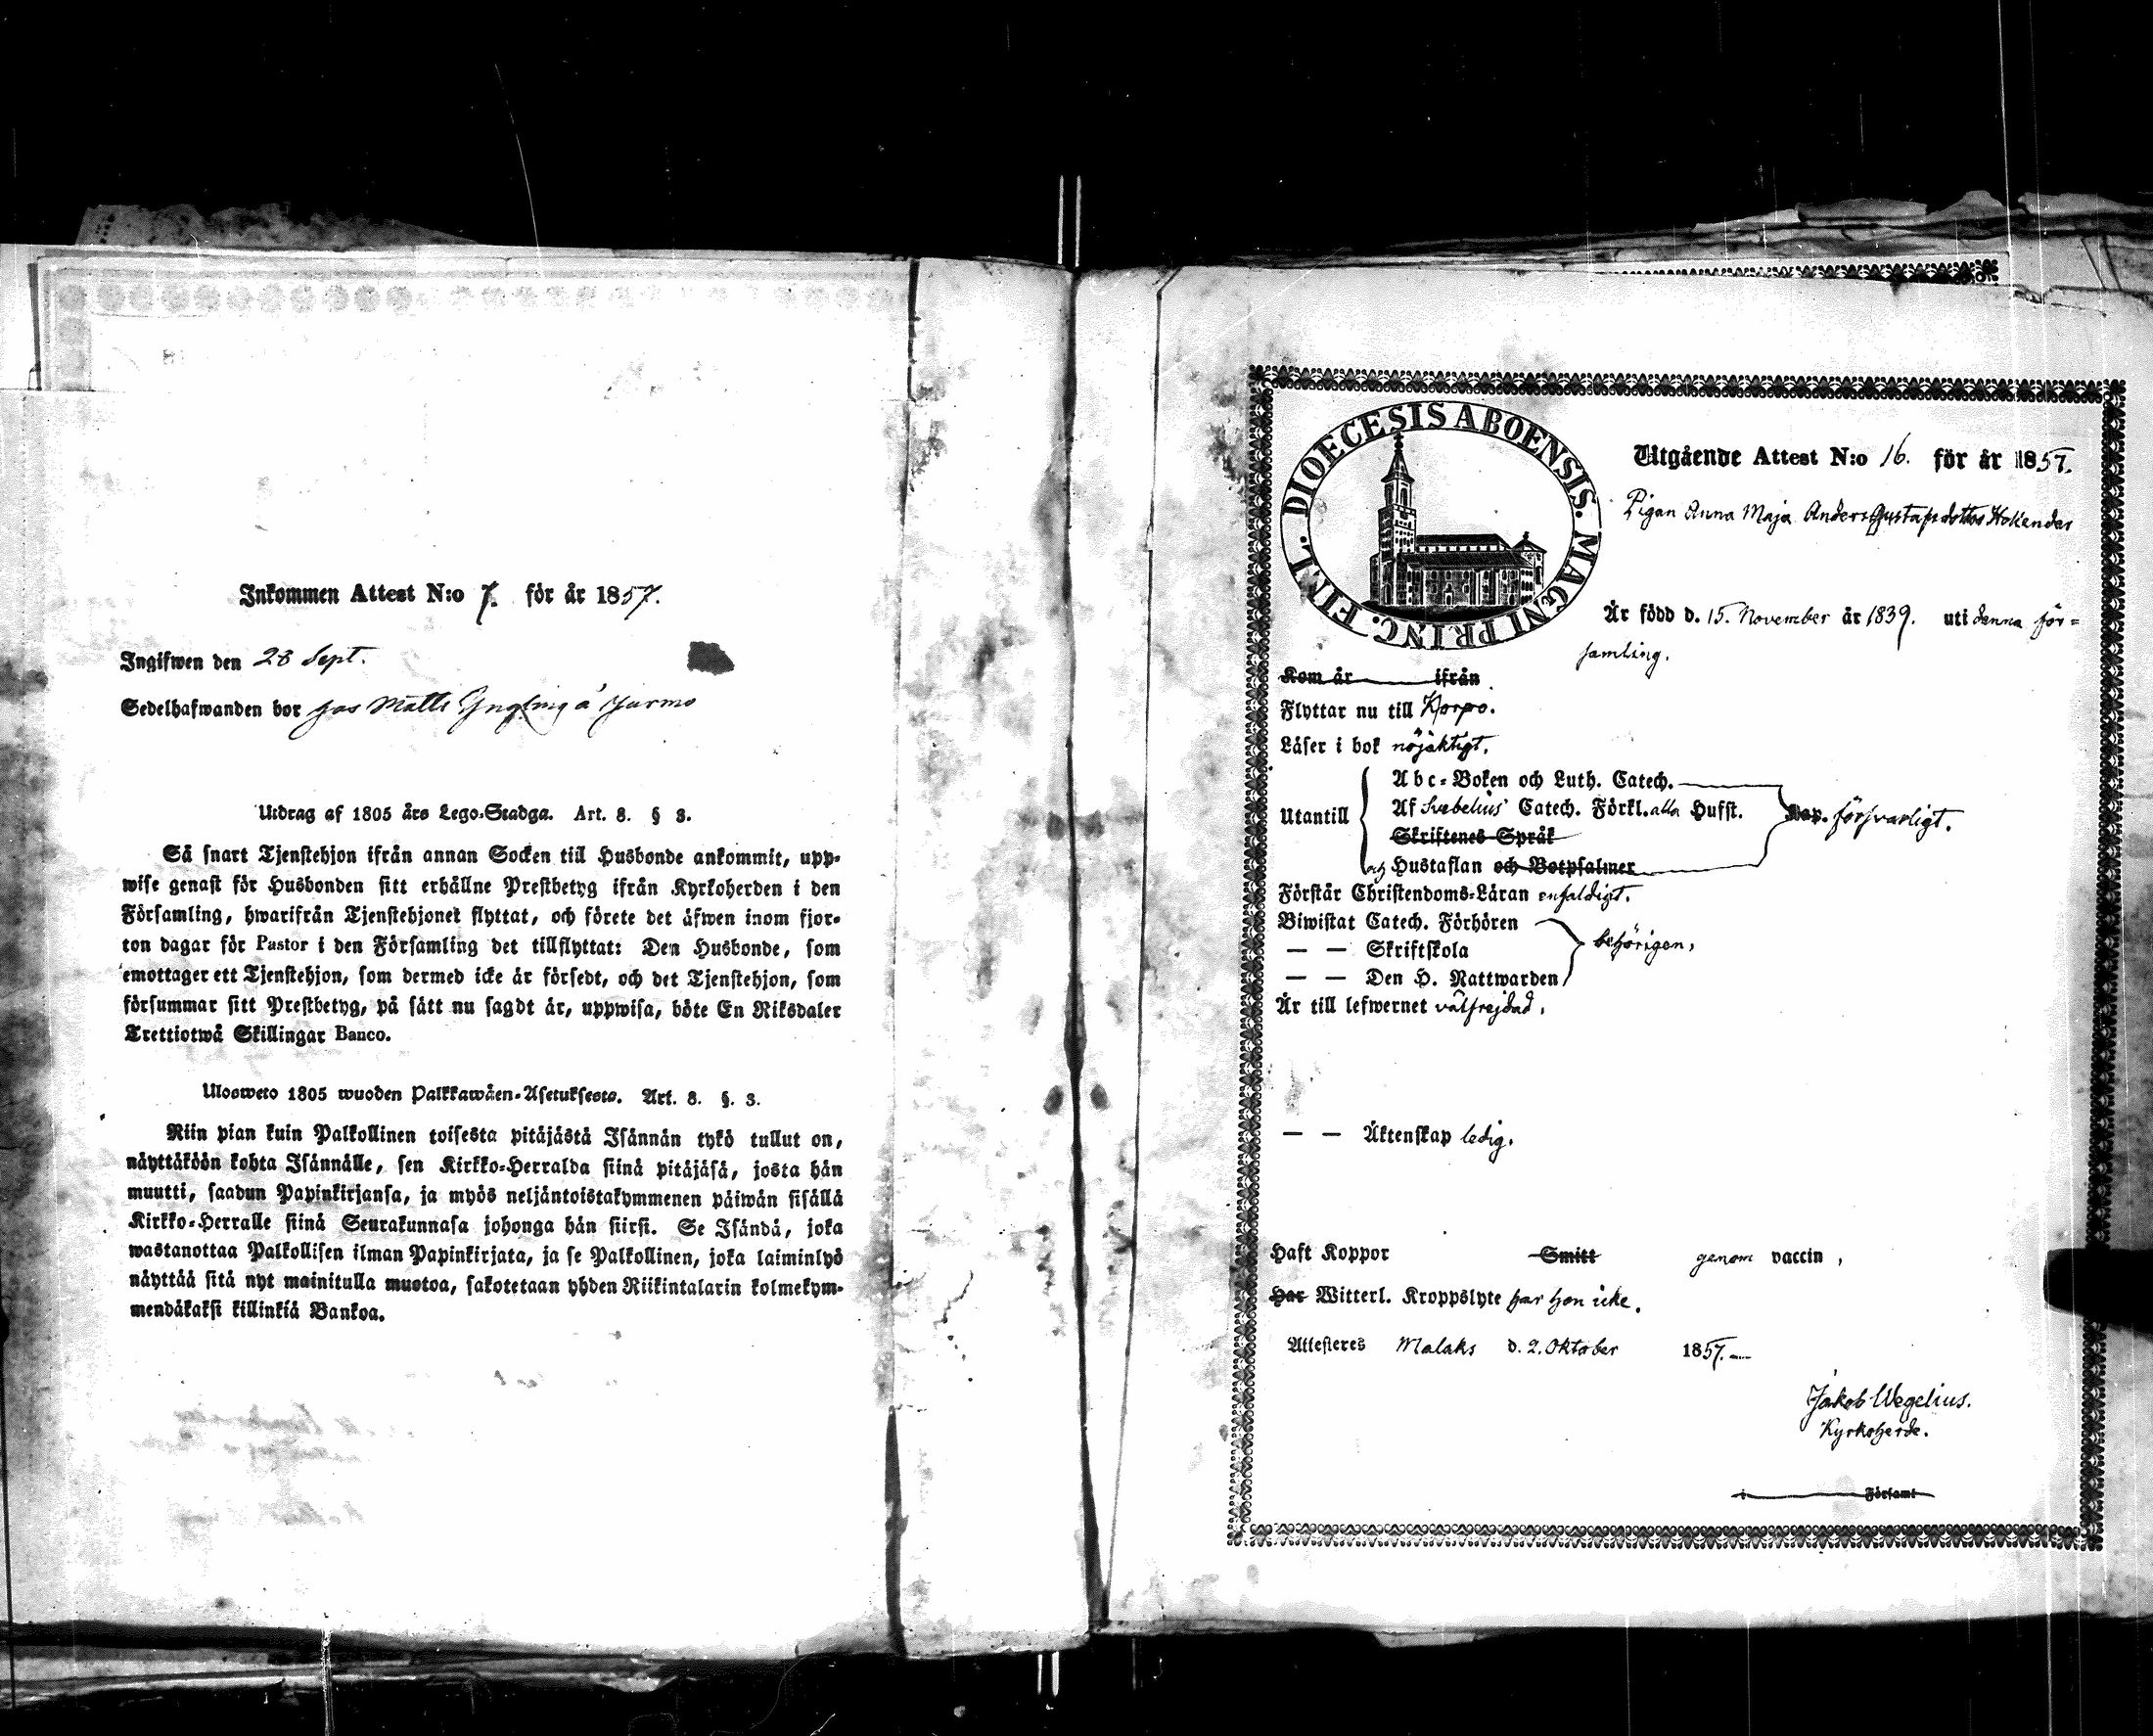 Inkommen Attest N:o 7. för år 1857.
Ingifwen den 28 Sept.
Sedelhafwanden bor hos Matts Yngling á Jurmo
Utdrag af 1805 års Lego-Stadga. Art. 8. § 3.
Så snart Tjenstehjon ifrån annan Socken till Husbonde ankommit, upp-
wise genast för Husbonden sitt erhållne Prestbetyg ifrån Kyrkoherden i den
Församling, hwarifrån Tjenstehjonet flyttat, och förete det äfwen inom fjor-
ton dagar för Pastor i den Församling det tillflyttat: Den Husbonde, som
emottager ett Tjenstehjon, som dermed icke är försedt, och det Tjenstehjon, som
försummar sitt Prestbetyg, på sätt nu sagdt är, uppwisa, böte En Riksdaler
Trettiotwå Skillingar Banco.
Ulosweto 1805 wuoden Palkkawäen-Asetuksesta. Art. 8. §. 3.
Niin pian kuin Palkollinen toisesta pitäjästä Isännän tykö tullut on,
näyttäköön kohta Isännälle, sen Kirkko-Herralda siinä pitäjäsä, josta hän
muutti, saadun Papinkirjansa, ja myös neljäntoistakymmenen päiwän sisällä
Kirkko-Herralle siinä Seurakunnasa johonga hän siirsi. Se Isändä, joka
wastanottaa Palkollisen ilman Papinkirjata, ja se Palkollinen, joka laiminlyö
näyttää sitä nyt mainitulla muotoa, sakotetaan yhden Riikintalarin kolmekym-
mendäkaksi killinkiä Bankoa.
DIOECESIS ABOENSIS. MAGNI PRINC. FINL.
Utgående Attest N:o 16. för år 1857.
Pigan Anna Maja Anders Gustafsdotter
Är född d. 15. November år 1839. uti denna för=
samling.
Kom år ifrån
Flyttar nu till Korpo.
Läser i bok nöjaktigt.
Abc-Boken och Luth. Catech.
Utantill Af Svebelius' Catech. Förkl. alla Hufst. Kap. försvarligt.
Skriftenes Språk
och Hustaflan och Botpsalmer
Förstår Christendoms-Läran enfaldigt.
Biwistat Catech. Förhören
— — Skriftskola behörigen,
— — Den H. Nattwarden
Är till lefwernet välfrejdad,
— — Äktenskap ledig.
Haft Koppor Smitt genom vaccin,
Har Witterl. Kroppslyte har hon icke.
Attesteres Malaks d. 2. Oktober 1857.
Jakob Wegelius.
Kyrkoherde.
i Församl